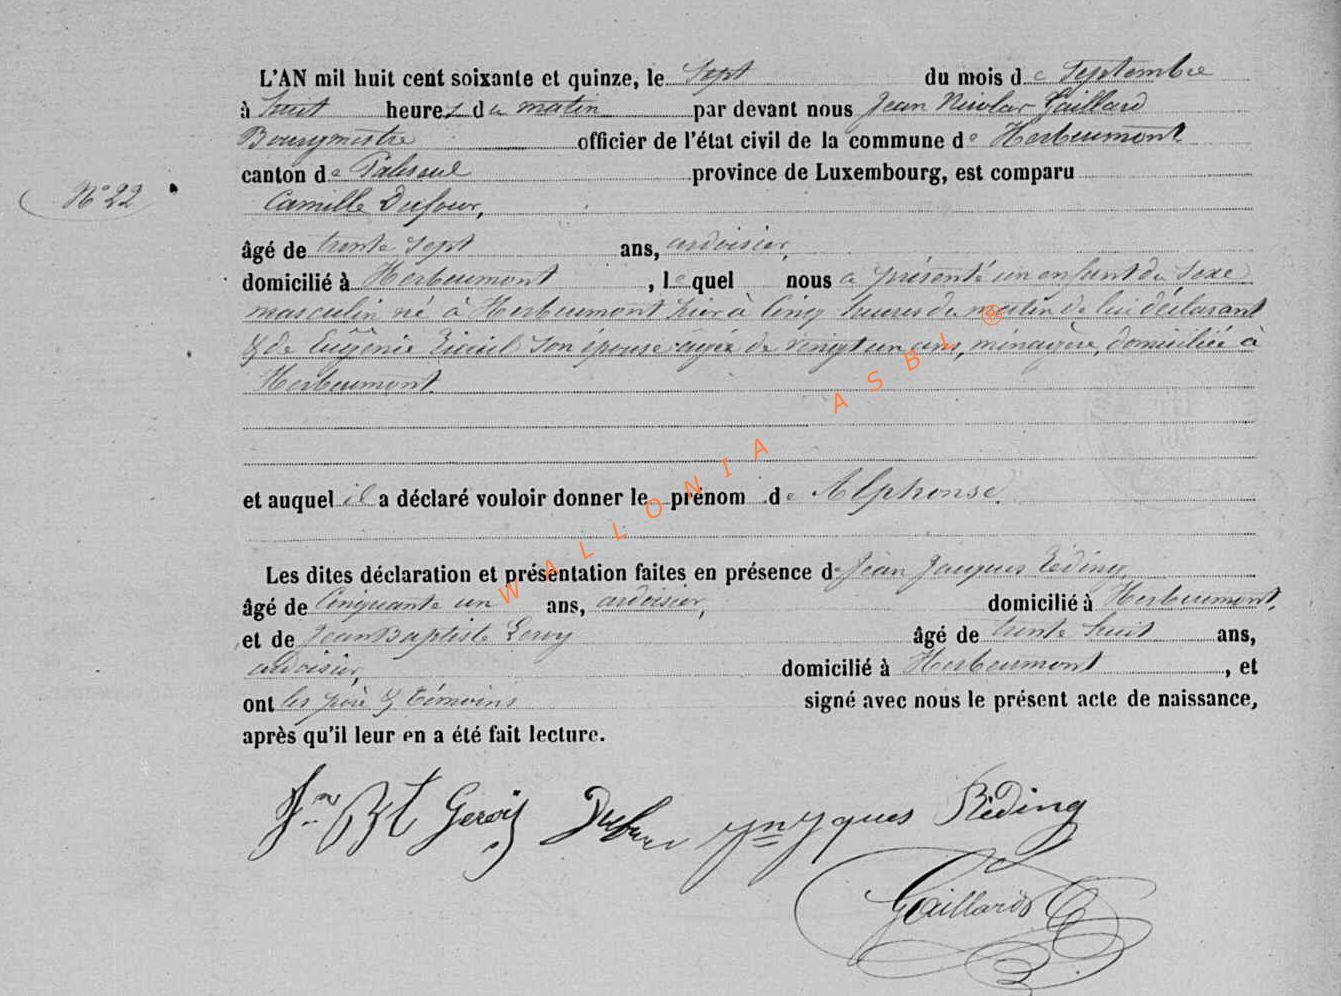 L'AN mil huit cent soixante et quinze, le Sept du mois de Septembre
à huit heures du matin par devant nous Jean Nicolas Gaillard
Bourgmestre officier de l'état civil de la commune de Herbeumont
canton de Paliseul province de Luxembourg, est comparu
N° 22
Camille Dufour,
âgé de trente sept ans, ardoisier,
domicilié à Herbeumont, lequel nous a présenté un enfant du Sexe
masculin né à Herbeumont hier à cinq heures du matin de lui déclarant
& de Eugénie son épouse âgée de vingt un ans, ménagère, domiciliée à
Herbeumont.
et auquel il a déclaré vouloir donner le prénom de Alphonse.
Les dites déclaration et présentation faites en présence de Jean Jacques Réding
âgé de Cinquante un ans, ardoisier, domicilié à Herbeumont,
et de Jean Baptiste âgé de trente huit ans,
ardoisier, domicilié à Herbeumont, et
ont les père & témoins signé avec nous le présent acte de naissance,
après qu'il leur en a été fait lecture.
Jn Bt Dufour Jn Jques Réding
Gaillard
WALLONIA ASBL ®